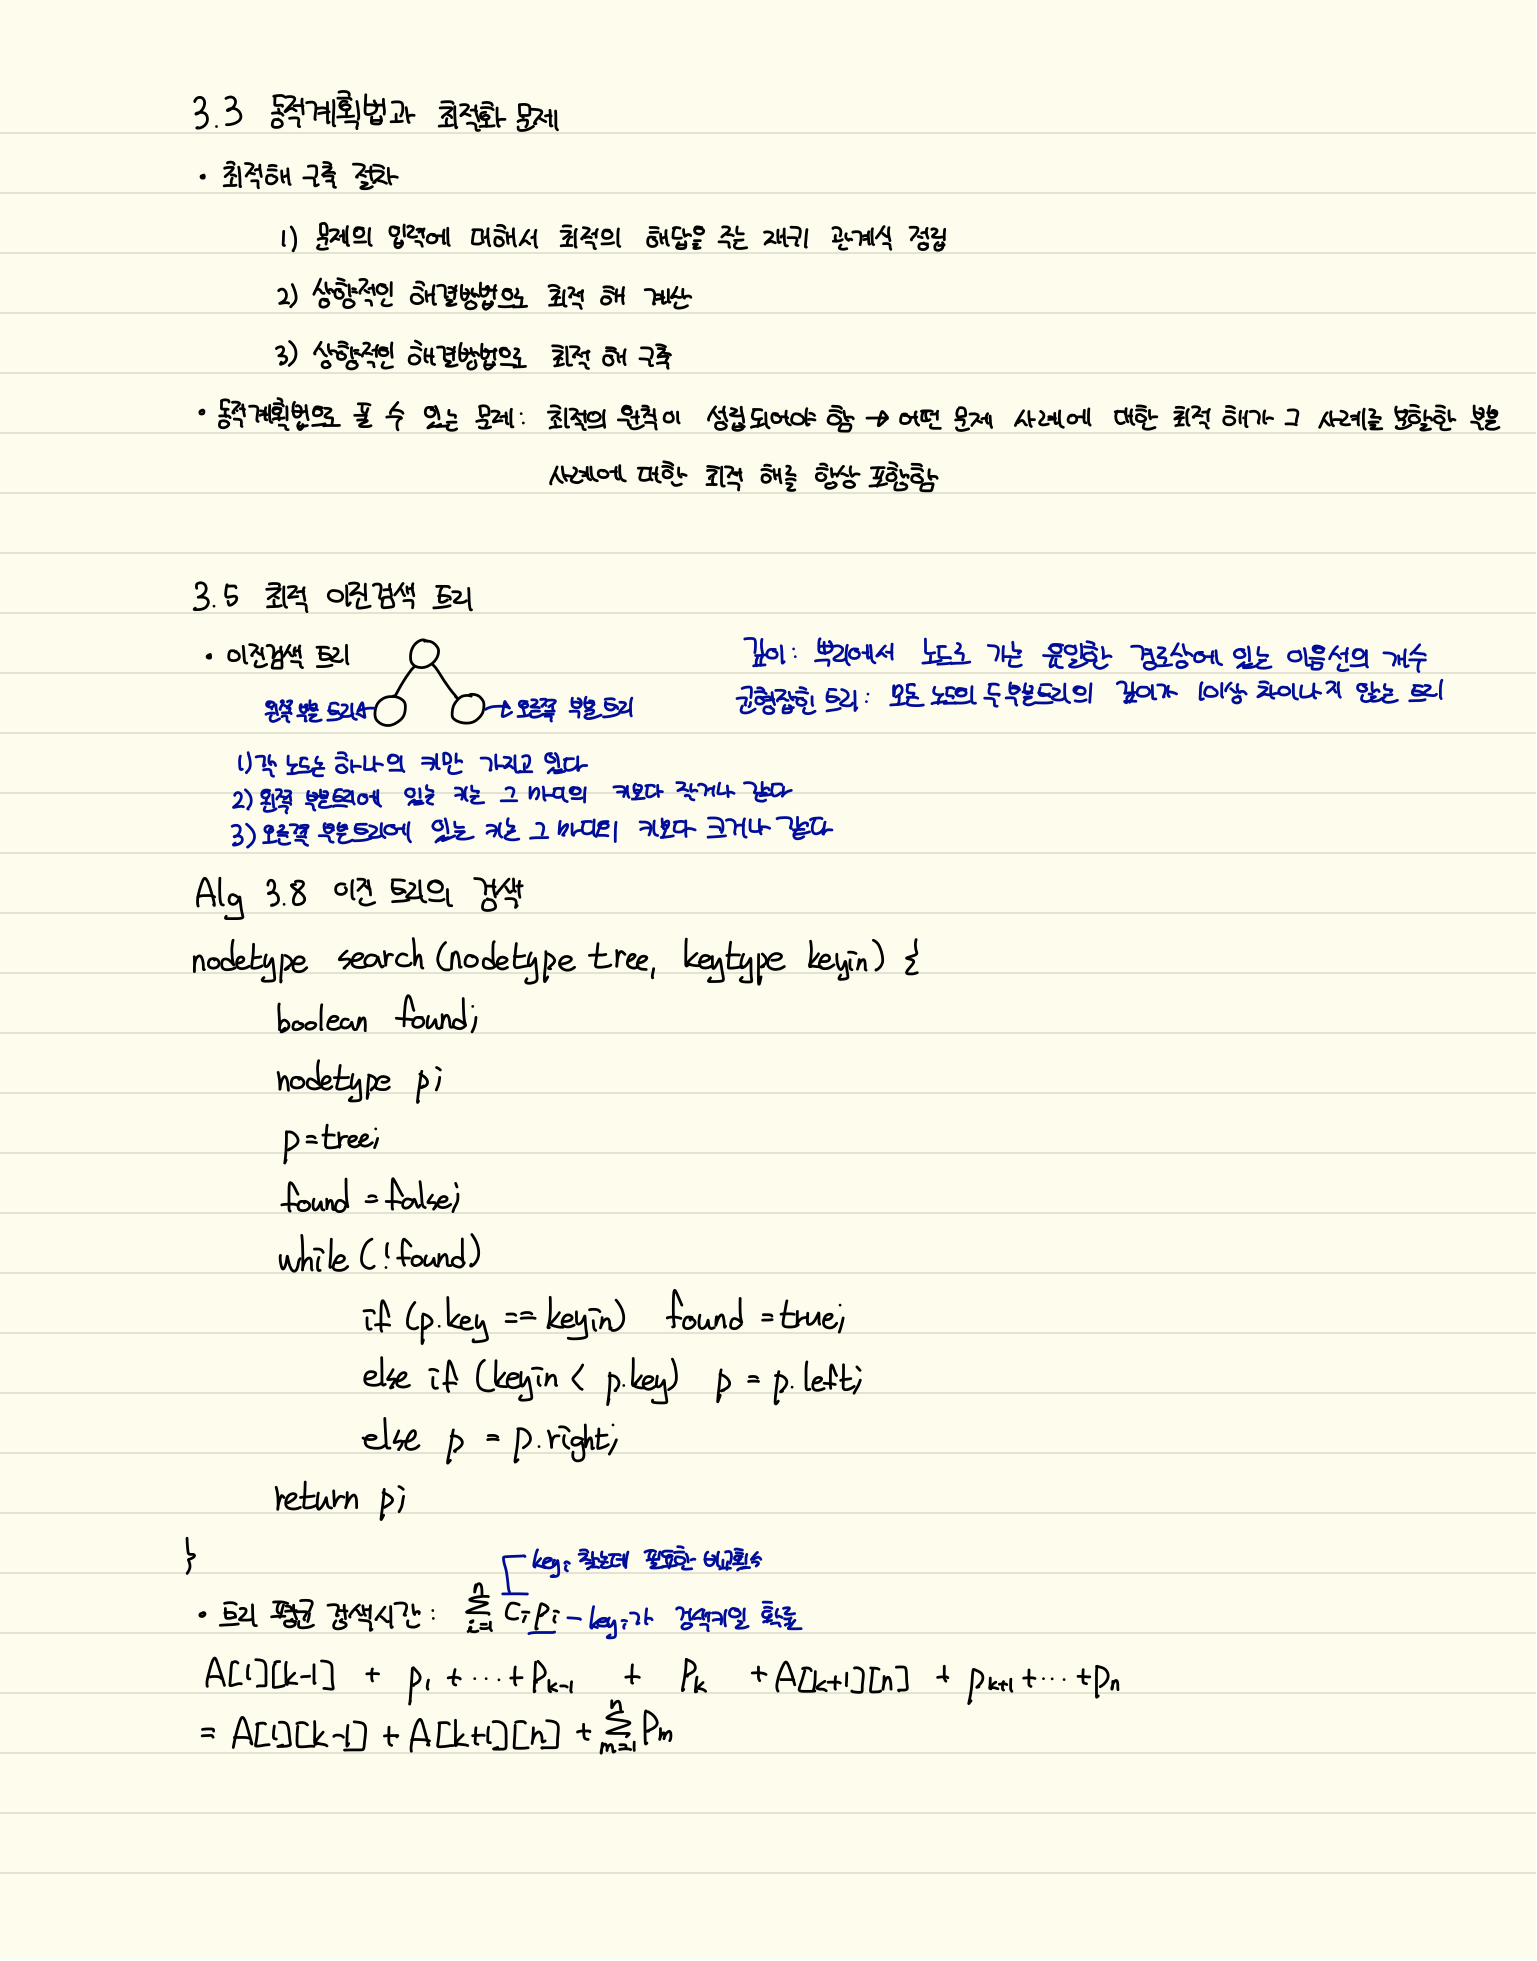 3.3 동적계획법과 최적화 문제
• 최적해 구축 절차
1) 문제의 입력에 대해서 최적의 해답을 주는 재귀 관계식 정립
2) 상향적인 해결방법으로 최적 해 계산
3) 상향적인 해결방법으로 최적 해 구축
• 동적계획법으로 풀 수 있는 문제: 최적의 원칙이 성립되어야 함 → 어떤 문제 사례에 대한 최적 해가 그 사례를 분할한 부분
사례에 대한 최적 해를 항상 포함함
3.5 최적 이진검색 트리
• 이진검색 트리
왼쪽 부분 트리 오른쪽 부분 트리
깊이: 뿌리에서 노드로 가는 유일한 경로상에 있는 이음선의 개수
균형잡힌 트리: 모든 노드의 두 부분트리의 깊이가 1이상 차이나지 않는 트리
1) 각 노드는 하나의 키만 가지고 있다
2) 왼쪽 부분트리에 있는 키는 그 마디의 키보다 작거나 같다
3) 오른쪽 부분트리에 있는 키는 그 마디의 키보다 크거나 같다
Alg 3.8 이진 트리의 검색
nodetype search (nodetype tree, keytype keyin) {
boolean found;
nodetype p;
p = tree;
found = false;
while (!found)
if (p.key == keyin) found = true;
else if (keyin < p.key) p = p.left;
else p = p.right;
return p;
}
key_i 찾는데 필요한 비교횟수
• 트리 평균 검색시간: Σ_{i=1}^{n} c_i p_i – key_i가 검색키일 확률
A[1][k-1] + p_1 + ··· + p_{k-1} + p_k + A[k+1][n] + p_{k+1} + ··· + p_n
= A[1][k-1] + A[k+1][n] + Σ_{m=1}^{n} p_m